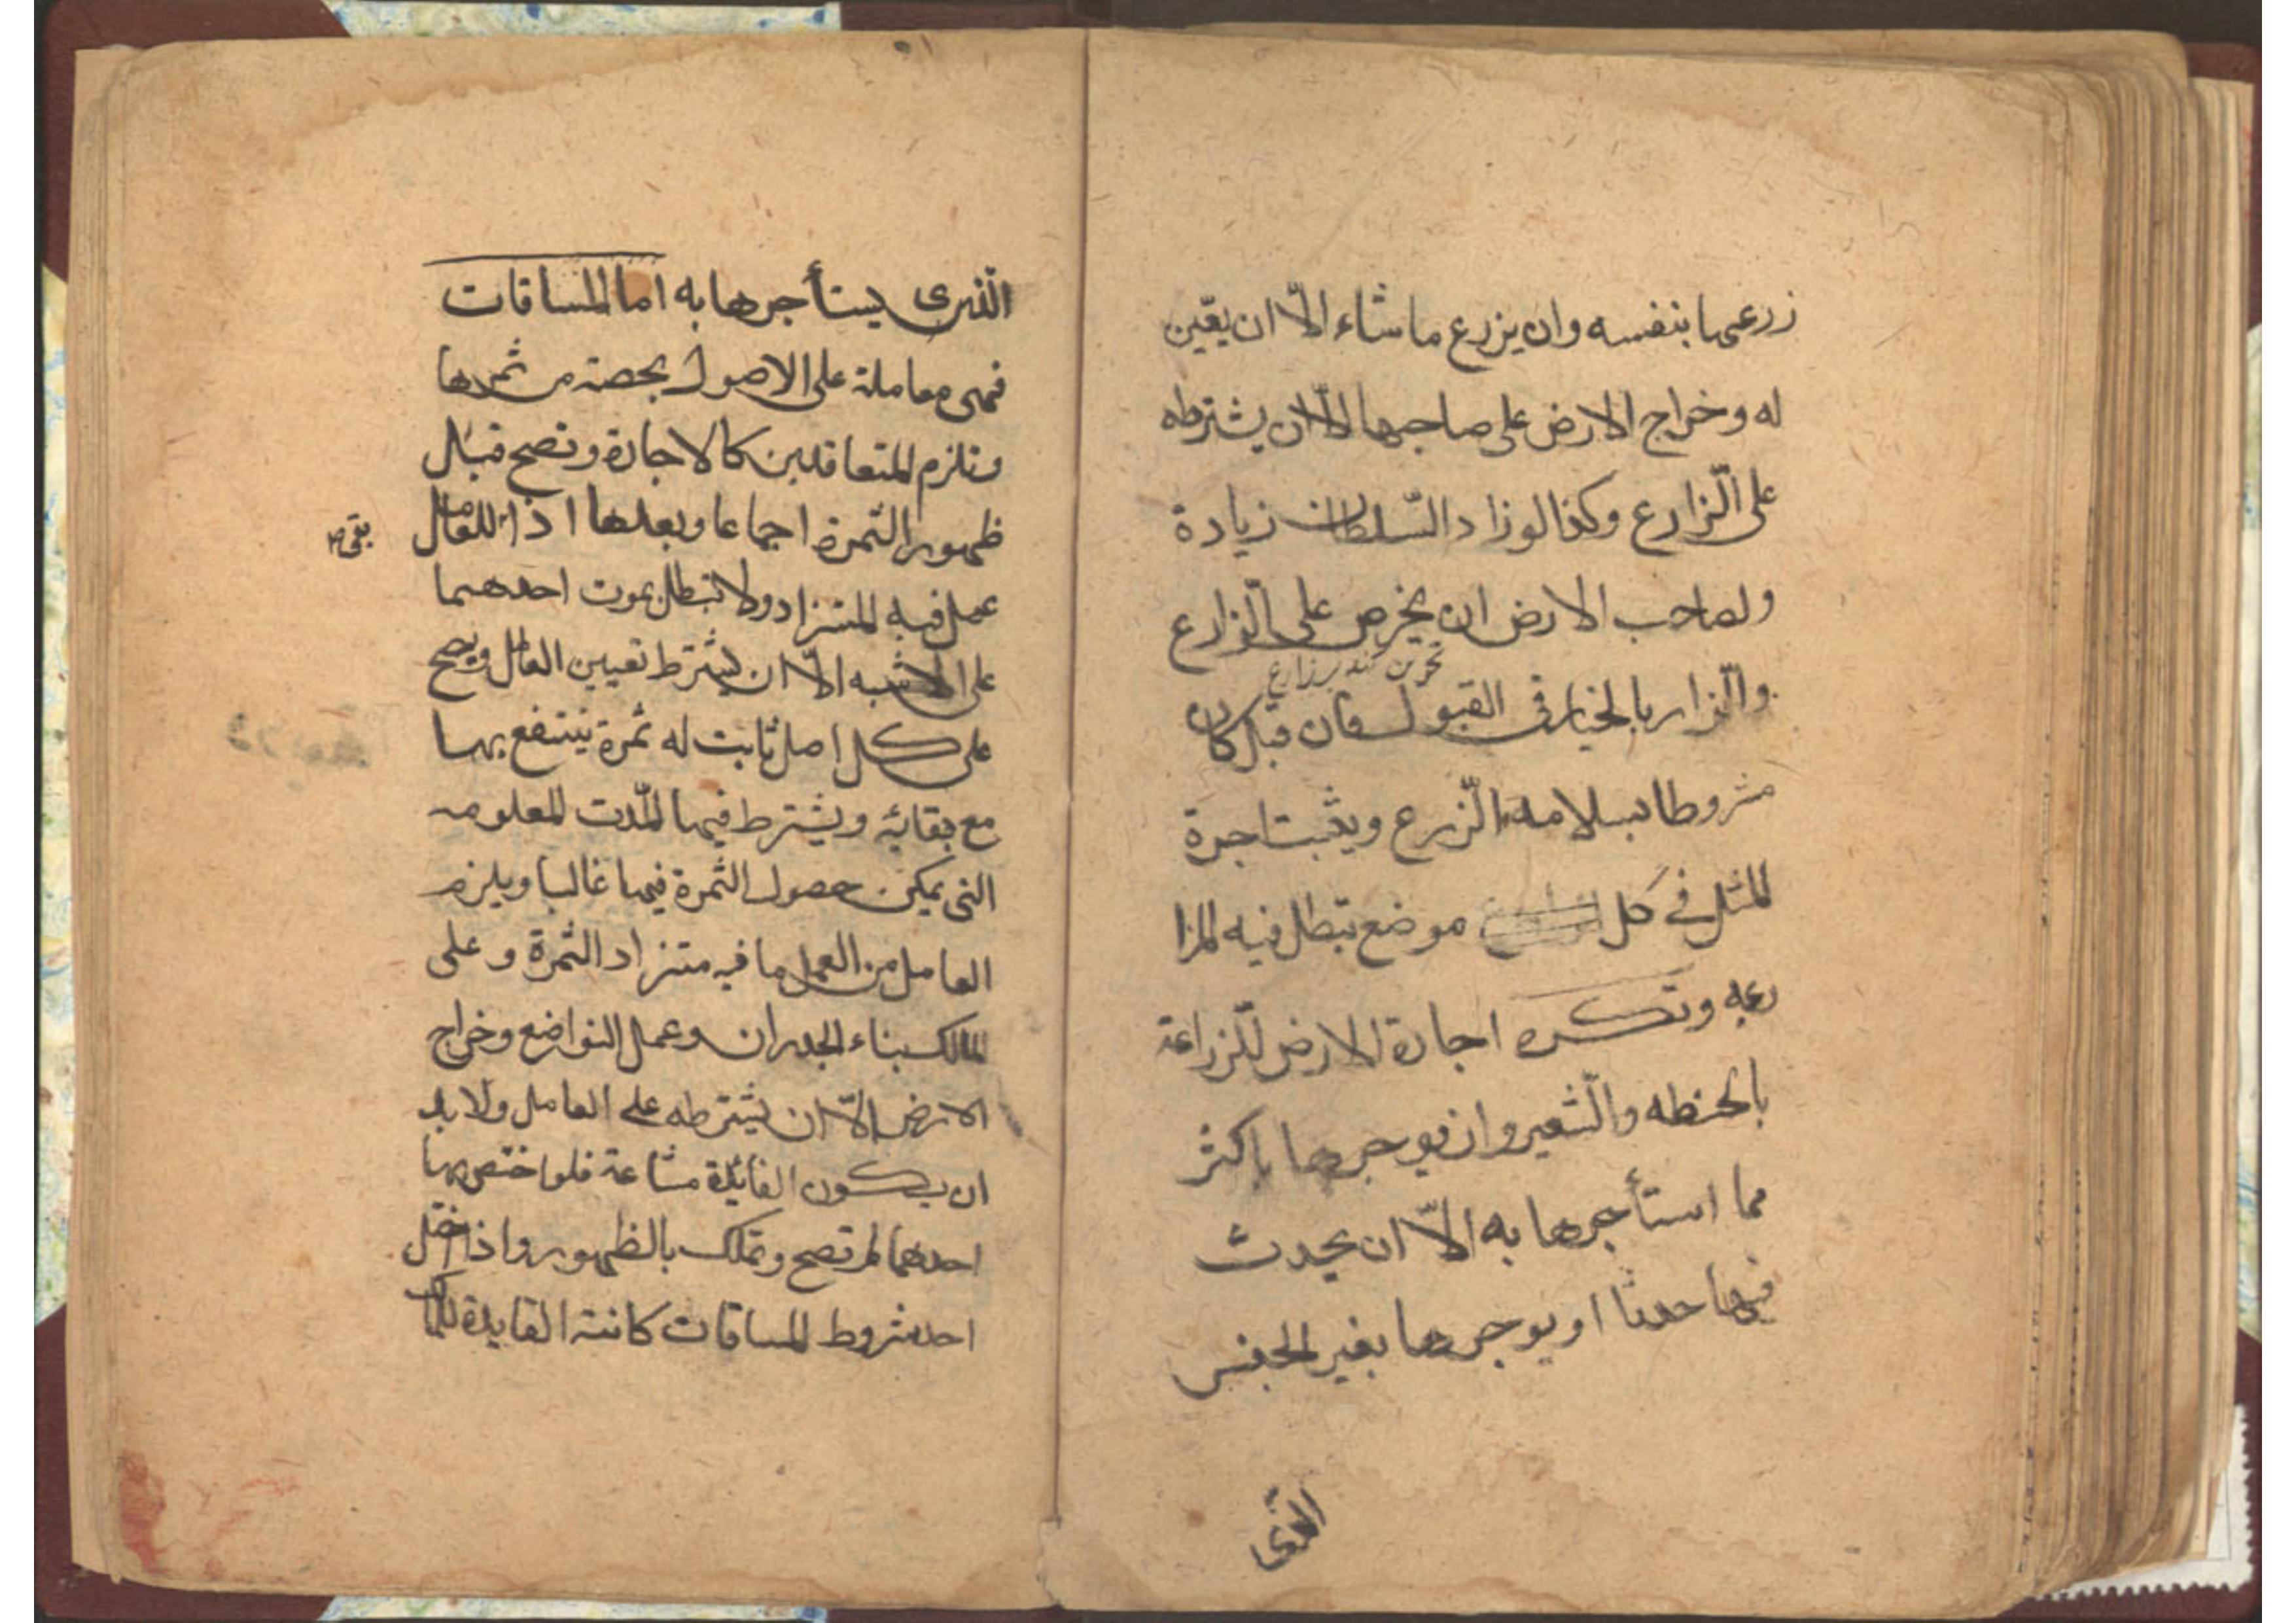 زرعها بنفسه وان يزرع ما شاء الّا ان يعّين
له وخراج الارض على صاحبها الّا ان يشترطه
على الّزارع وكذا لوزاد السّلطان زيادة
ولصاحب الارض ان يخرص على الّزارع
تخمين كند بر زارع
والّزارع بالخيار فى القبول فان قبل كان
مشروطا بسلامة الّزرع ويثبت اجرة
المثل في كل موضع تبطل فيه المزا
رعه وتكره اجارة الارض للّزراعة
بالحنطه والّشعير وان يوجرها باكثر
مما استأجرها به الّا ان يحدث
فيها حدثا او يوجرها بغير الجنس
الّذى
الّذى يستأجرها به اما المساقات
فهى معاملة على الاصول بحصة من ثمرها
وتلزم المتعاقدين كالاجارة وتصح قبل
ظهور الثمرة اجماعا وبعدها اذا للعامل
بقى
عمل فيه المستزاد ولا تبطل بموت احدهما
على الاشبه الّا ان يشترط تعيين العامل ويصح
على كل اصل ثابت له ثمرة ينتفع بها
مع بقائه ويشترط فيها المّدت المعلومه
التى يمكن حصول الثمرة فيها غالبا ويلزم
العامل من العمل ما فيه مستزاد الثمرة وعلى
المالك بناء الجدران وعمل النواضع وخراج
الارض الّا ان يشترطه على العامل ولا بد
ان يكون الفائدة مشاعة فلو اختص بها
احدهما لم تصح وتملك بالظهور واذا اختل
احد شروط المساقات كانت الفايدة للمالك